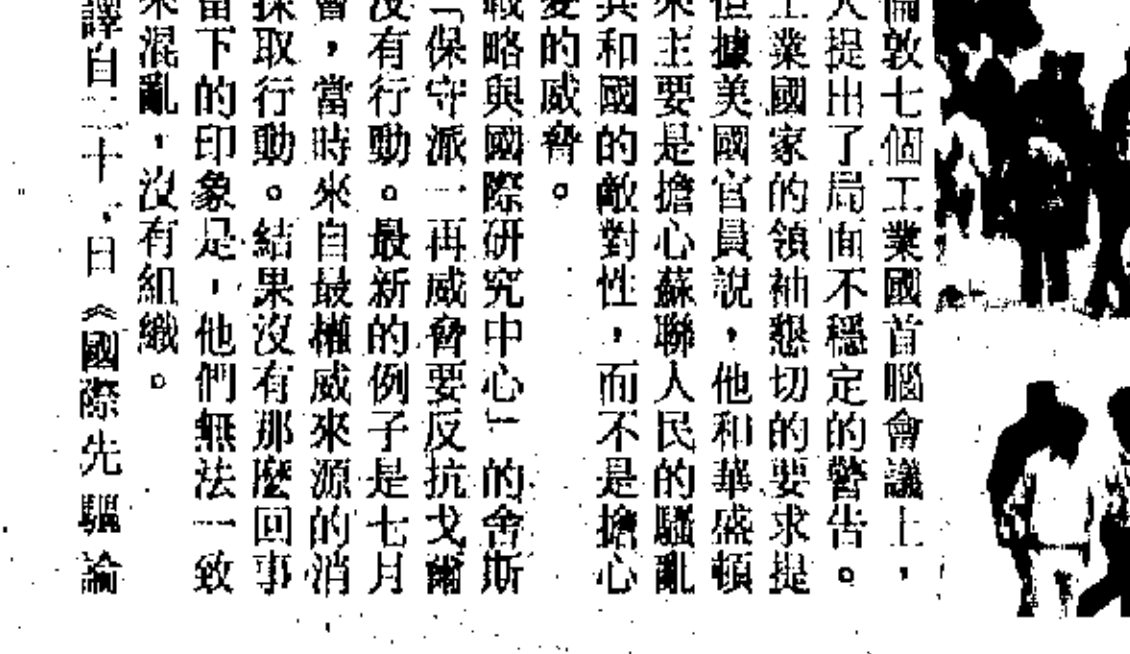 倫敦七個工業國首腦會議上，
人提出了局面不穩定的警告。
工業國家的領袖懇切的要求提
但據美國官員說，他和華盛頓
來主要是擔心蘇聯人民的騷亂
共和國的敵對性，而不是擔心
變的威脅。
戰略與國際研究中心」的舍斯
「保守派一再威脅要反抗戈爾
沒有行動。最新的例子是七月
會，當時來自最權威來源的消
採取行動。結果沒有那麼回事
當下的印象是，他們無法一致
來混亂，沒有組織。
譯自二十日《國際先驅論